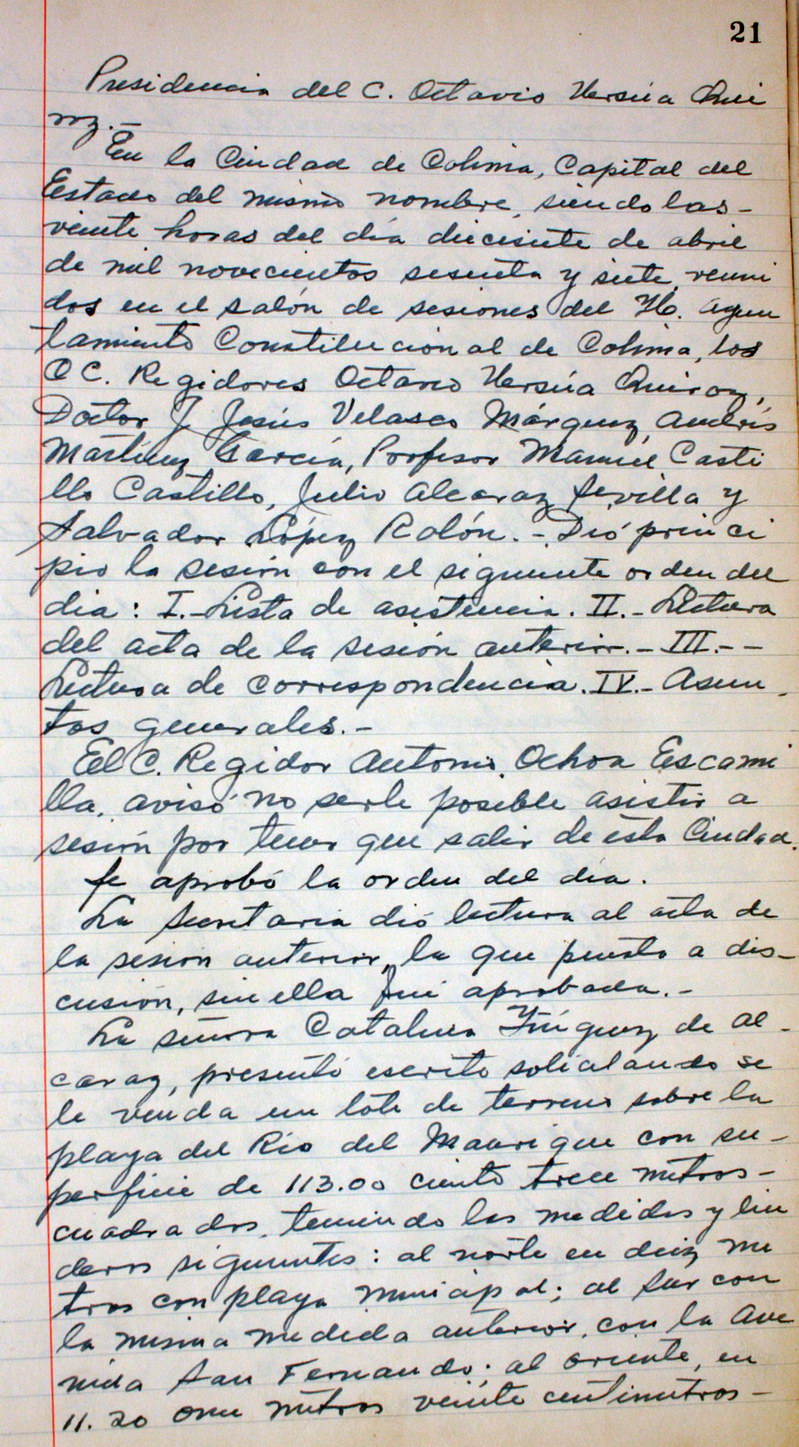 21
Presidencia del C. Octavio Ursúa Qui
roz.-
En la Ciudad de Colima, Capital del
Estado del mismo nombre, siendo las-
veinte horas del día diecisiete de abril
de mil novecientos sesenta y siete, reuni
dos en el salón de sesiones del H. Ayun
tamiento Constitucional de Colima, los
CC. Regidores Octavio Ursúa Quiroz,
Doctor J. Jesús Velasco Márquez, Andrés
Martínez García, Profesor Manuel Casti
llo Castillo, Julio Alcaraz Sevilla y
Salvador López Rolón.- Dió princi
pio la sesión con el siguiente orden del
dia: I.- Lista de asistencia. II.- Lectura
del acta de la sesión anterior.- III.--
Lectura de correspondencia. IV.- Asun-
tos generales.-
El C. Regidor Antonio Ochoa Escami
lla, avisó no serle posible asistir a
sesión por tener que salir de ésta Ciudad.
Se aprobó la orden del día.
La Secretaria dió lectura al acta de
la sesión anterior, la que puesta a dis-
cusión, sin ella fué aprobada.-
La señora Catalina Yñiguez de Al-
caraz, presentó escrito solicitando se
le venda un lote de terreno sobre la
playa del Río del Manrique con su-
perficie de 113.00 ciento trece metros-
cuadrados, teniendo las medidas y lin
deros siguientes: al norte en diez me
tros con playa municipal; al Sur con
la misma medida anterior, con la Ave
nida San Fernando; al oriente, en
11.20 once metros veinte centímetros-